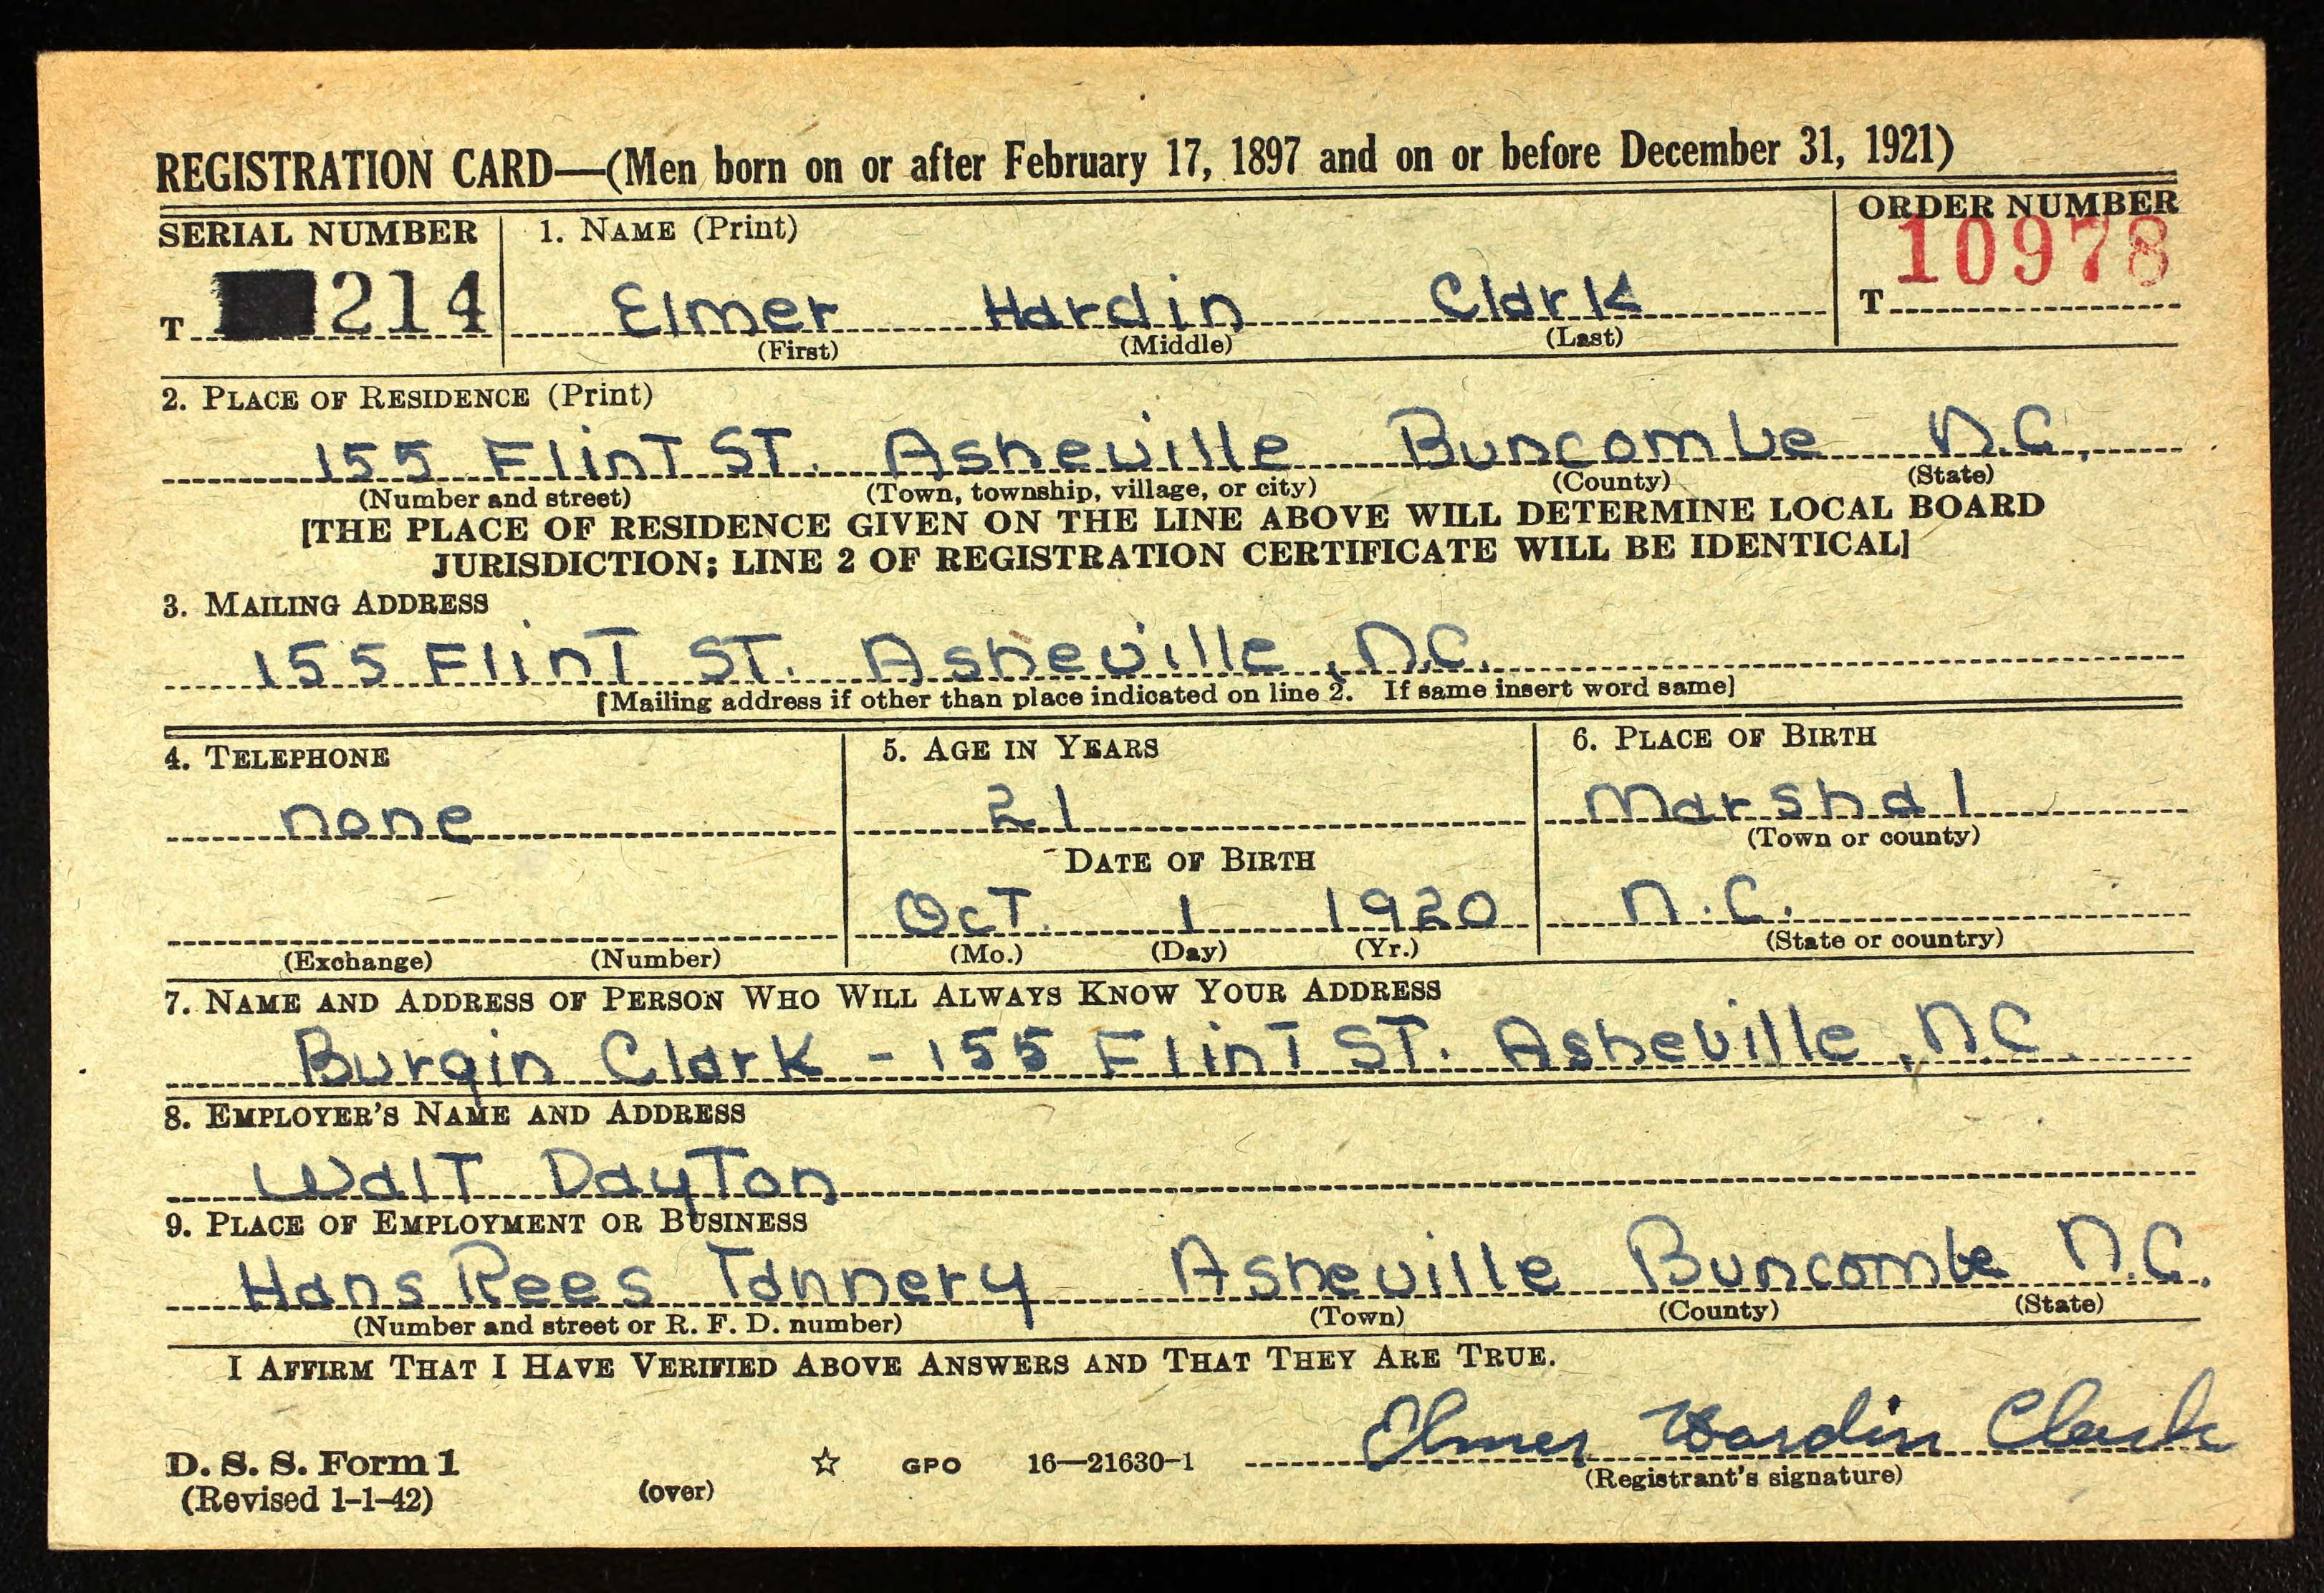 REGISTRATION CARD—(Men born on or after February 17, 1897 and on or before December 31, 1921)
SERIAL NUMBER
1. NAME (Print)
ORDER NUMBER
10978
T 214
Elmer Hardin Clark
T
(First) (Middle) (Last)
2. PLACE OF RESIDENCE (Print)
155 Flint St. Asheville Buncombe N.C.
(Number and street) (Town, township, village, or city) (County) (State)
[THE PLACE OF RESIDENCE GIVEN ON THE LINE ABOVE WILL DETERMINE LOCAL BOARD
JURISDICTION; LINE 2 OF REGISTRATION CERTIFICATE WILL BE IDENTICAL]
3. MAILING ADDRESS
155 Flint St. Asheville, N.C.
[Mailing address if other than place indicated on line 2. If same insert word same]
4. TELEPHONE
none
(Exchange) (Number)
5. AGE IN YEARS
21
DATE OF BIRTH
Oct. 1 1920
(Mo.) (Day) (Yr.)
6. PLACE OF BIRTH
Marshal
(Town or county)
N.C.
(State or country)
7. NAME AND ADDRESS OF PERSON WHO WILL ALWAYS KNOW YOUR ADDRESS
Burgin Clark - 155 Flint St. Asheville, N.C.
8. EMPLOYER'S NAME AND ADDRESS
Walt Dayton
9. PLACE OF EMPLOYMENT OR BUSINESS
Hans Rees Tannery Asheville Buncombe N.C.
(Number and street or R. F. D. number) (Town) (County) (State)
I AFFIRM THAT I HAVE VERIFIED ABOVE ANSWERS AND THAT THEY ARE TRUE.
Elmer Hardin Clark
(Registrant's signature)
D. S. S. Form 1
(Revised 1-1-42)
(over)
☆ GPO 16—21630-1